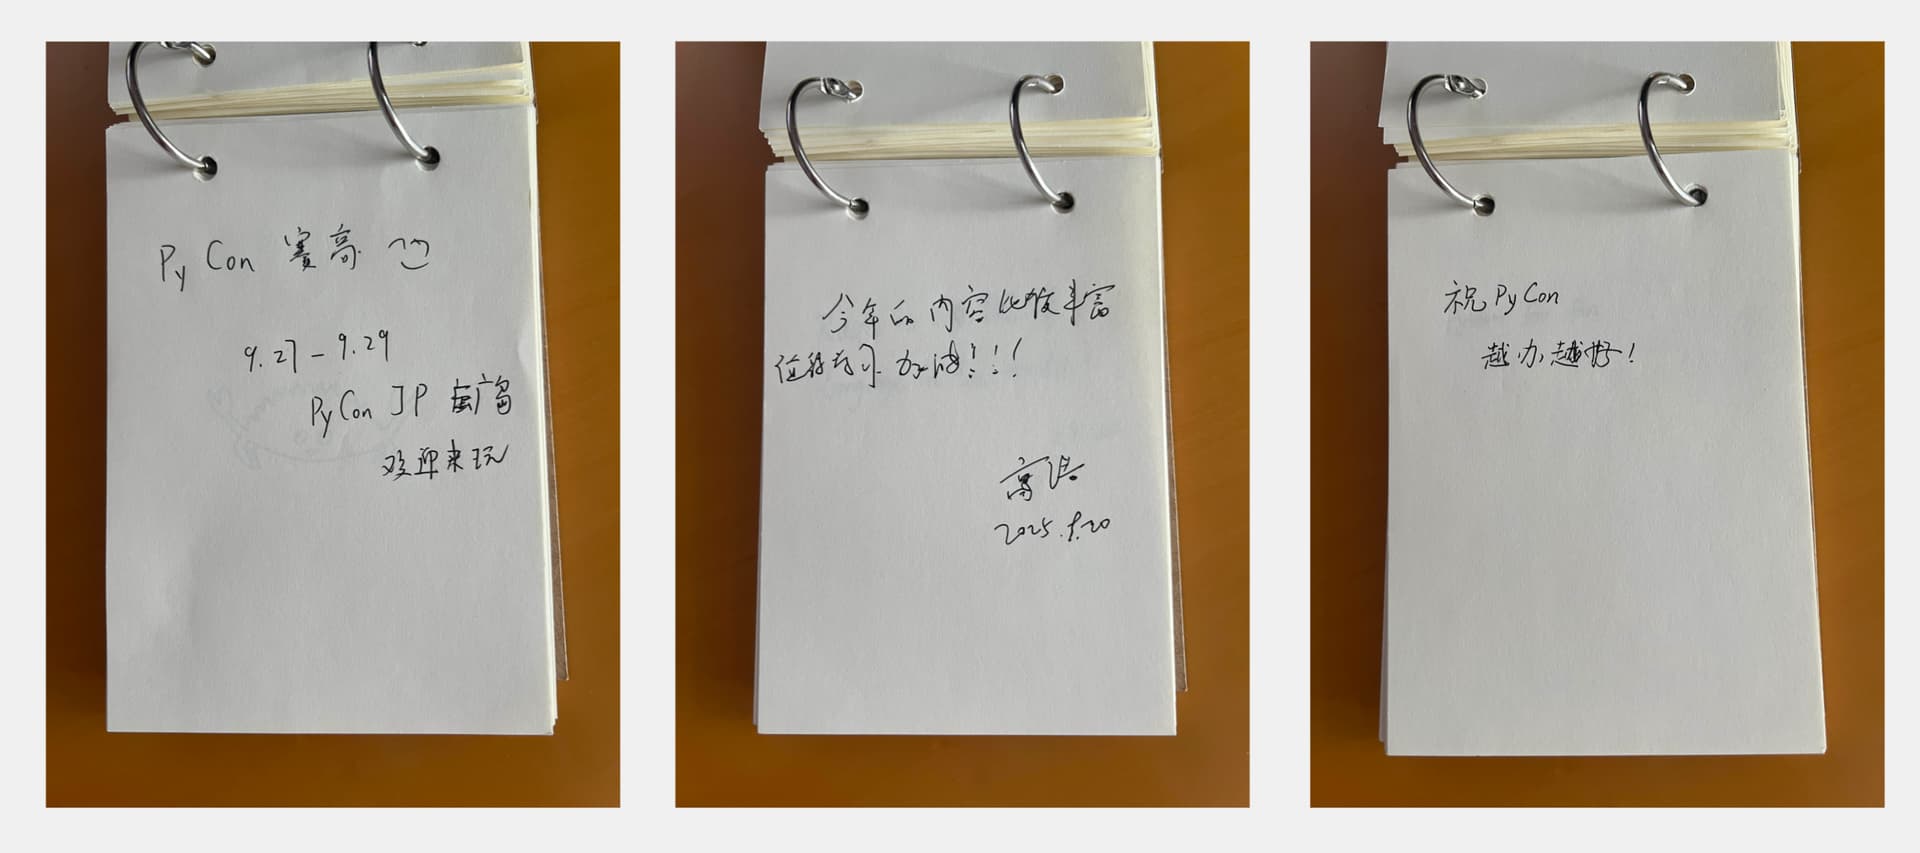 PyCon 赛高
9.27 - 9.29
PyCon JP 在广岛
欢迎来玩
今年的内容比较丰富
值得学习 加油!!!
高
2025.9.20
祝 PyCon
越办越好!